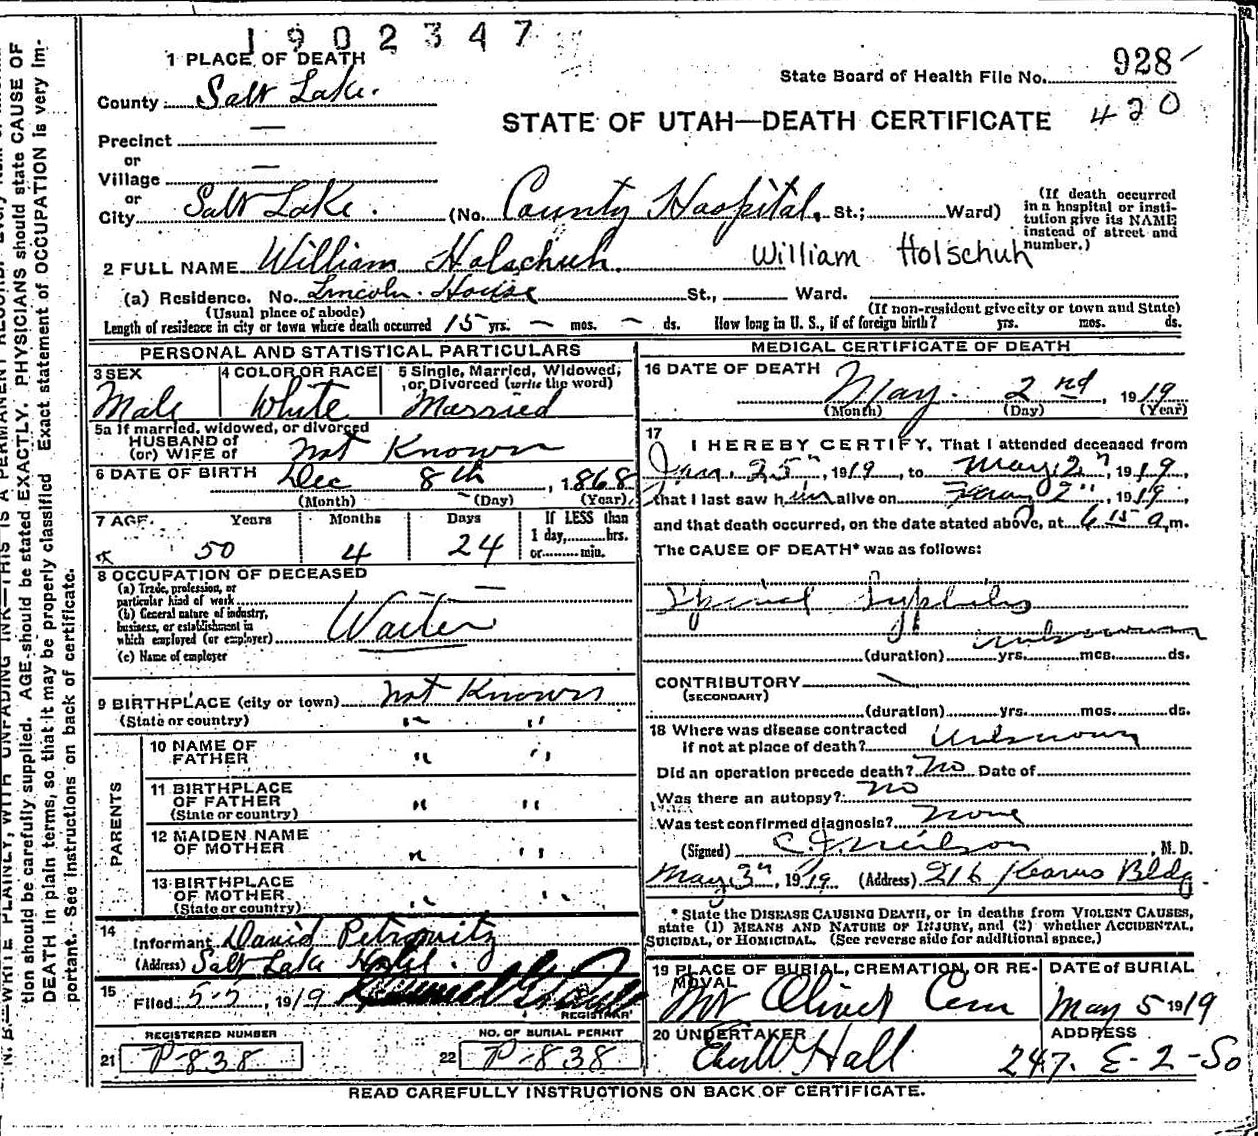 1902347
1 PLACE OF DEATH
State Board of Health File No. 928
420
County Salt Lake.
STATE OF UTAH—DEATH CERTIFICATE
Precinct —
or
Village —
or
City Salt Lake. (No. County Hospital. St.; Ward)
(If death occurred in a hospital or institution give its NAME instead of street and number.)
2 FULL NAME William Holschuh. William Holschuh
(a) Residence. No. Lincoln House St., Ward.
(Usual place of abode) (If non-resident give city or town and State)
Length of residence in city or town where death occurred 15 yrs. — mos. — ds. How long in U. S., if of foreign birth? yrs. mos. ds.
PERSONAL AND STATISTICAL PARTICULARS
3 SEX Male
4 COLOR OR RACE White
5 Single, Married, Widowed, or Divorced (write the word) Married
5a If married, widowed, or divorced
HUSBAND of
(or) WIFE of not Known
6 DATE OF BIRTH Dec 8th, 1868
(Month) (Day) (Year)
7 AGE Years Months Days If LESS than
1 day, hrs.
or min.
50 4 24
8 OCCUPATION OF DECEASED
(a) Trade, profession, or
particular kind of work —
(b) General nature of industry,
business, or establishment in
which employed (or employer) Waiter
(c) Name of employer
9 BIRTHPLACE (city or town) not Known
(State or country) " "
PARENTS
10 NAME OF
FATHER " "
11 BIRTHPLACE
OF FATHER
(State or country) " "
12 MAIDEN NAME
OF MOTHER " "
13 BIRTHPLACE
OF MOTHER
(State or country) " "
14
Informant David Petrowitz
(Address) Salt Lake
15
Filed 5-5, 1919
REGISTRAR
REGISTERED NUMBER
21 P-838
NO. OF BURIAL PERMIT
22 P-838
MEDICAL CERTIFICATE OF DEATH
16 DATE OF DEATH
May 2nd, 1919
(Month) (Day) (Year)
17
I HEREBY CERTIFY, That I attended deceased from
Jan. 25", 1919, to May 2", 1919,
that I last saw him alive on 2", 1919
and that death occurred, on the date stated above, at 615 a.m.
The CAUSE OF DEATH* was as follows:
Spinal Syphilis
unknown
(duration) yrs. mos. ds.
CONTRIBUTORY
(SECONDARY)
(duration) yrs. mos. ds.
18 Where was disease contracted
if not at place of death? Unknown
Did an operation precede death? No Date of
Was there an autopsy? No
Was test confirmed diagnosis? None
(Signed) C. J. Neilson, M. D.
May 3", 1919 (Address) 216 Kearns Bldg.
* State the DISEASE CAUSING DEATH, or in deaths from VIOLENT CAUSES,
state (1) MEANS AND NATURE OF INJURY, and (2) whether ACCIDENTAL,
SUICIDAL, or HOMICIDAL. (See reverse side for additional space.)
19 PLACE OF BURIAL, CREMATION, OR REMOVAL
Mt Olivet Cem
DATE OF BURIAL
May 5 1919
20 UNDERTAKER
Eber W Hall
ADDRESS
247. E-2-So
READ CAREFULLY INSTRUCTIONS ON BACK OF CERTIFICATE.
N. B.—WRITE PLAINLY, WITH UNFADING INK—THIS IS A PERMANENT RECORD.
tion should be carefully supplied. AGE should be stated EXACTLY. PHYSICIANS should state CAUSE OF
DEATH in plain terms, so that it may be properly classified. Exact statement of OCCUPATION is very im-
portant. See instructions on back of certificate.